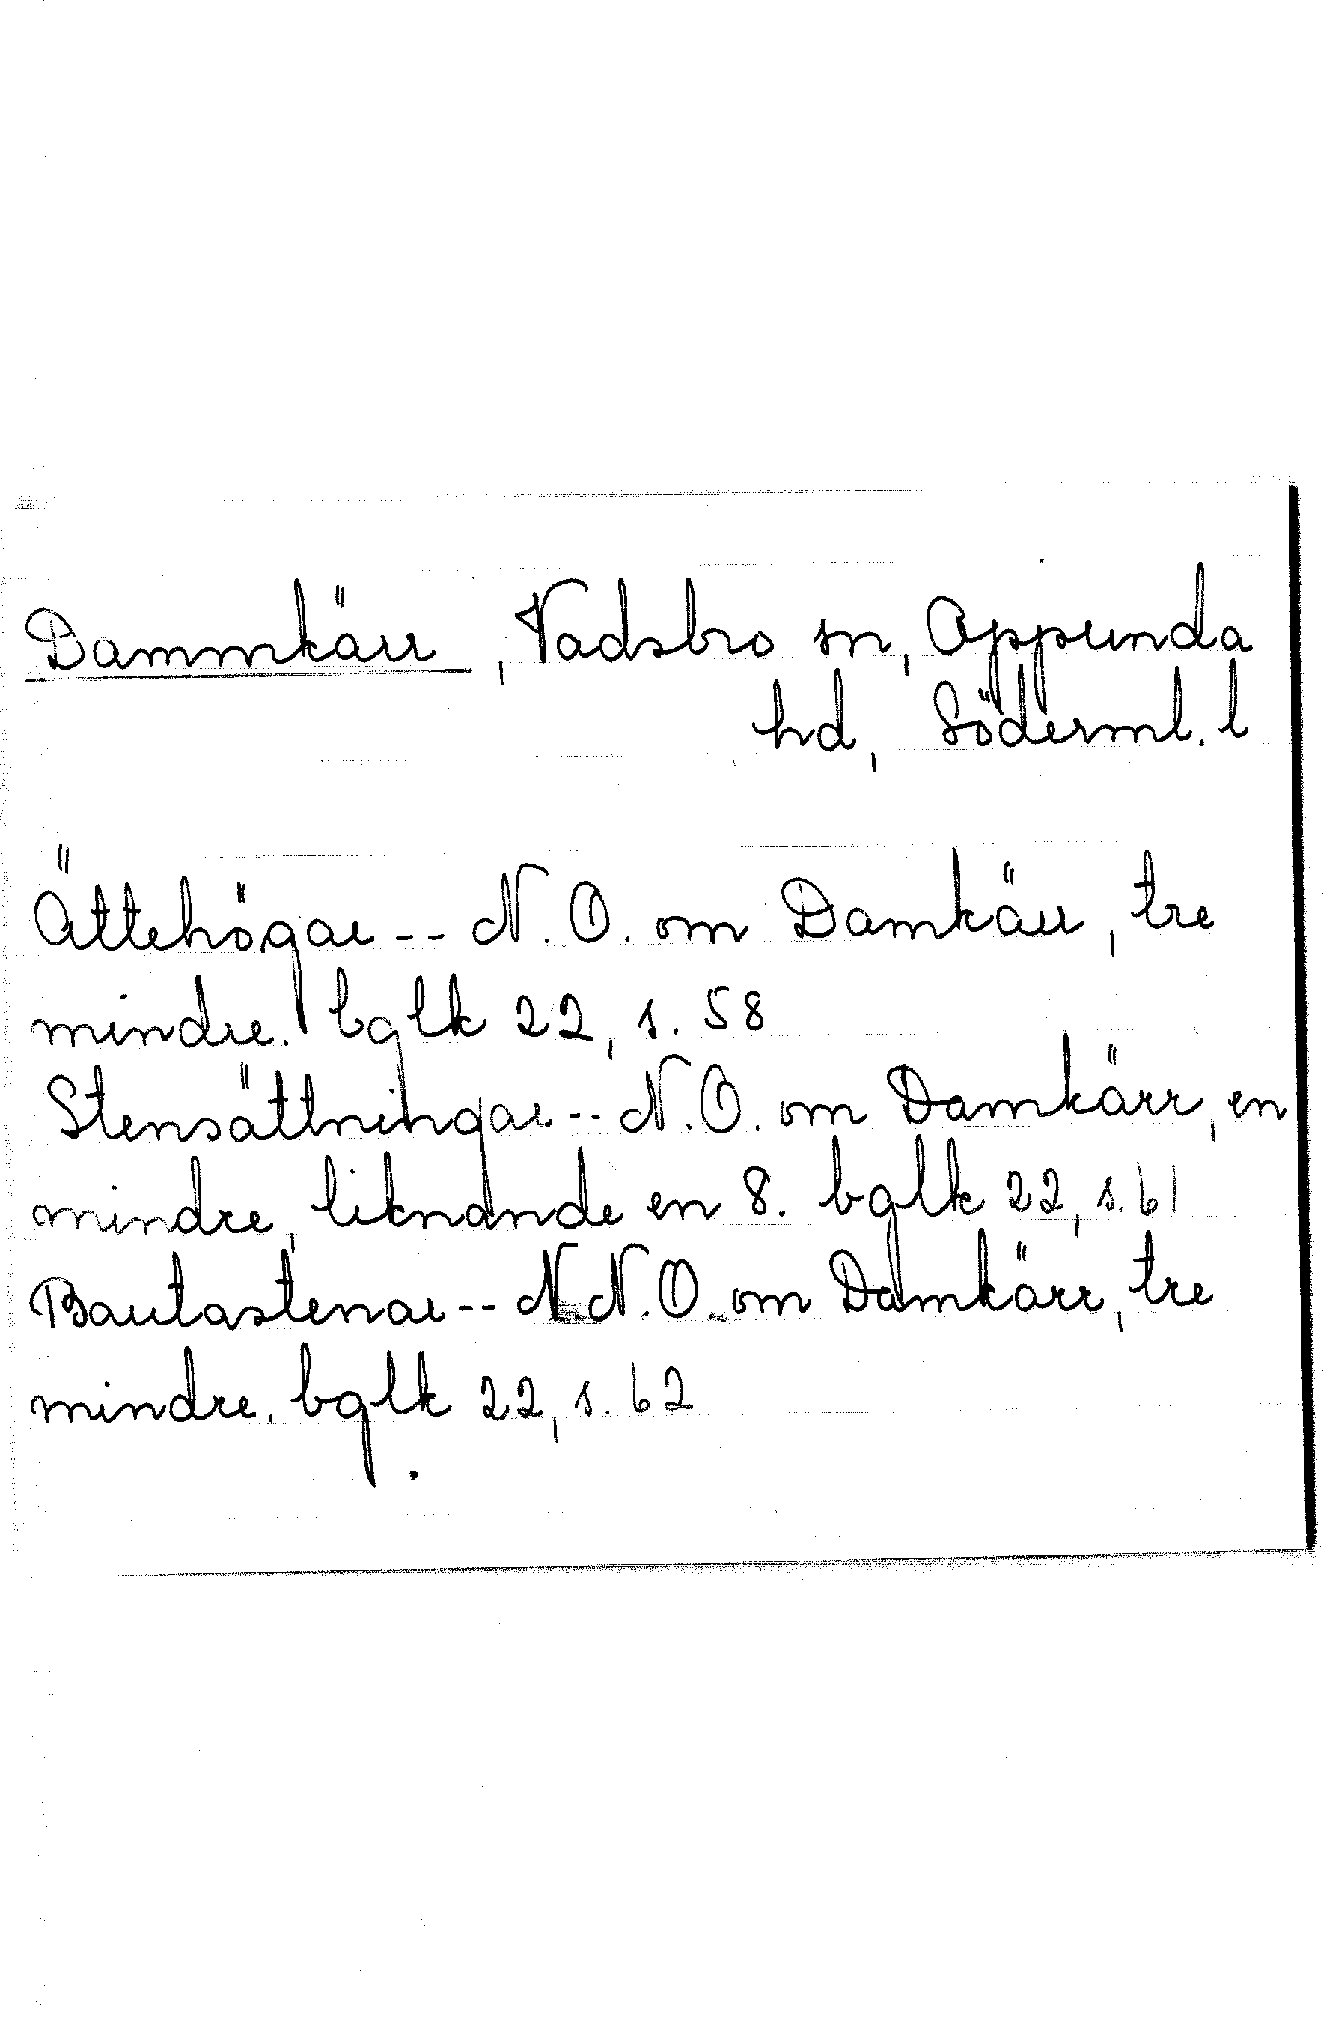 Dammkärr, Vadsbro sn, Oppunda
hd, Söderml. l
Ättehögar -- N.O. om Damkärr, tre
mindre. bglk 22, s. 58
Stensättningar -- N.O. om Damkärr, en
mindre, liknande en 8. bglk 22, s. 61
Bautastenar -- N.N.O. om Damkärr, tre
mindre. bglk 22, s. 62